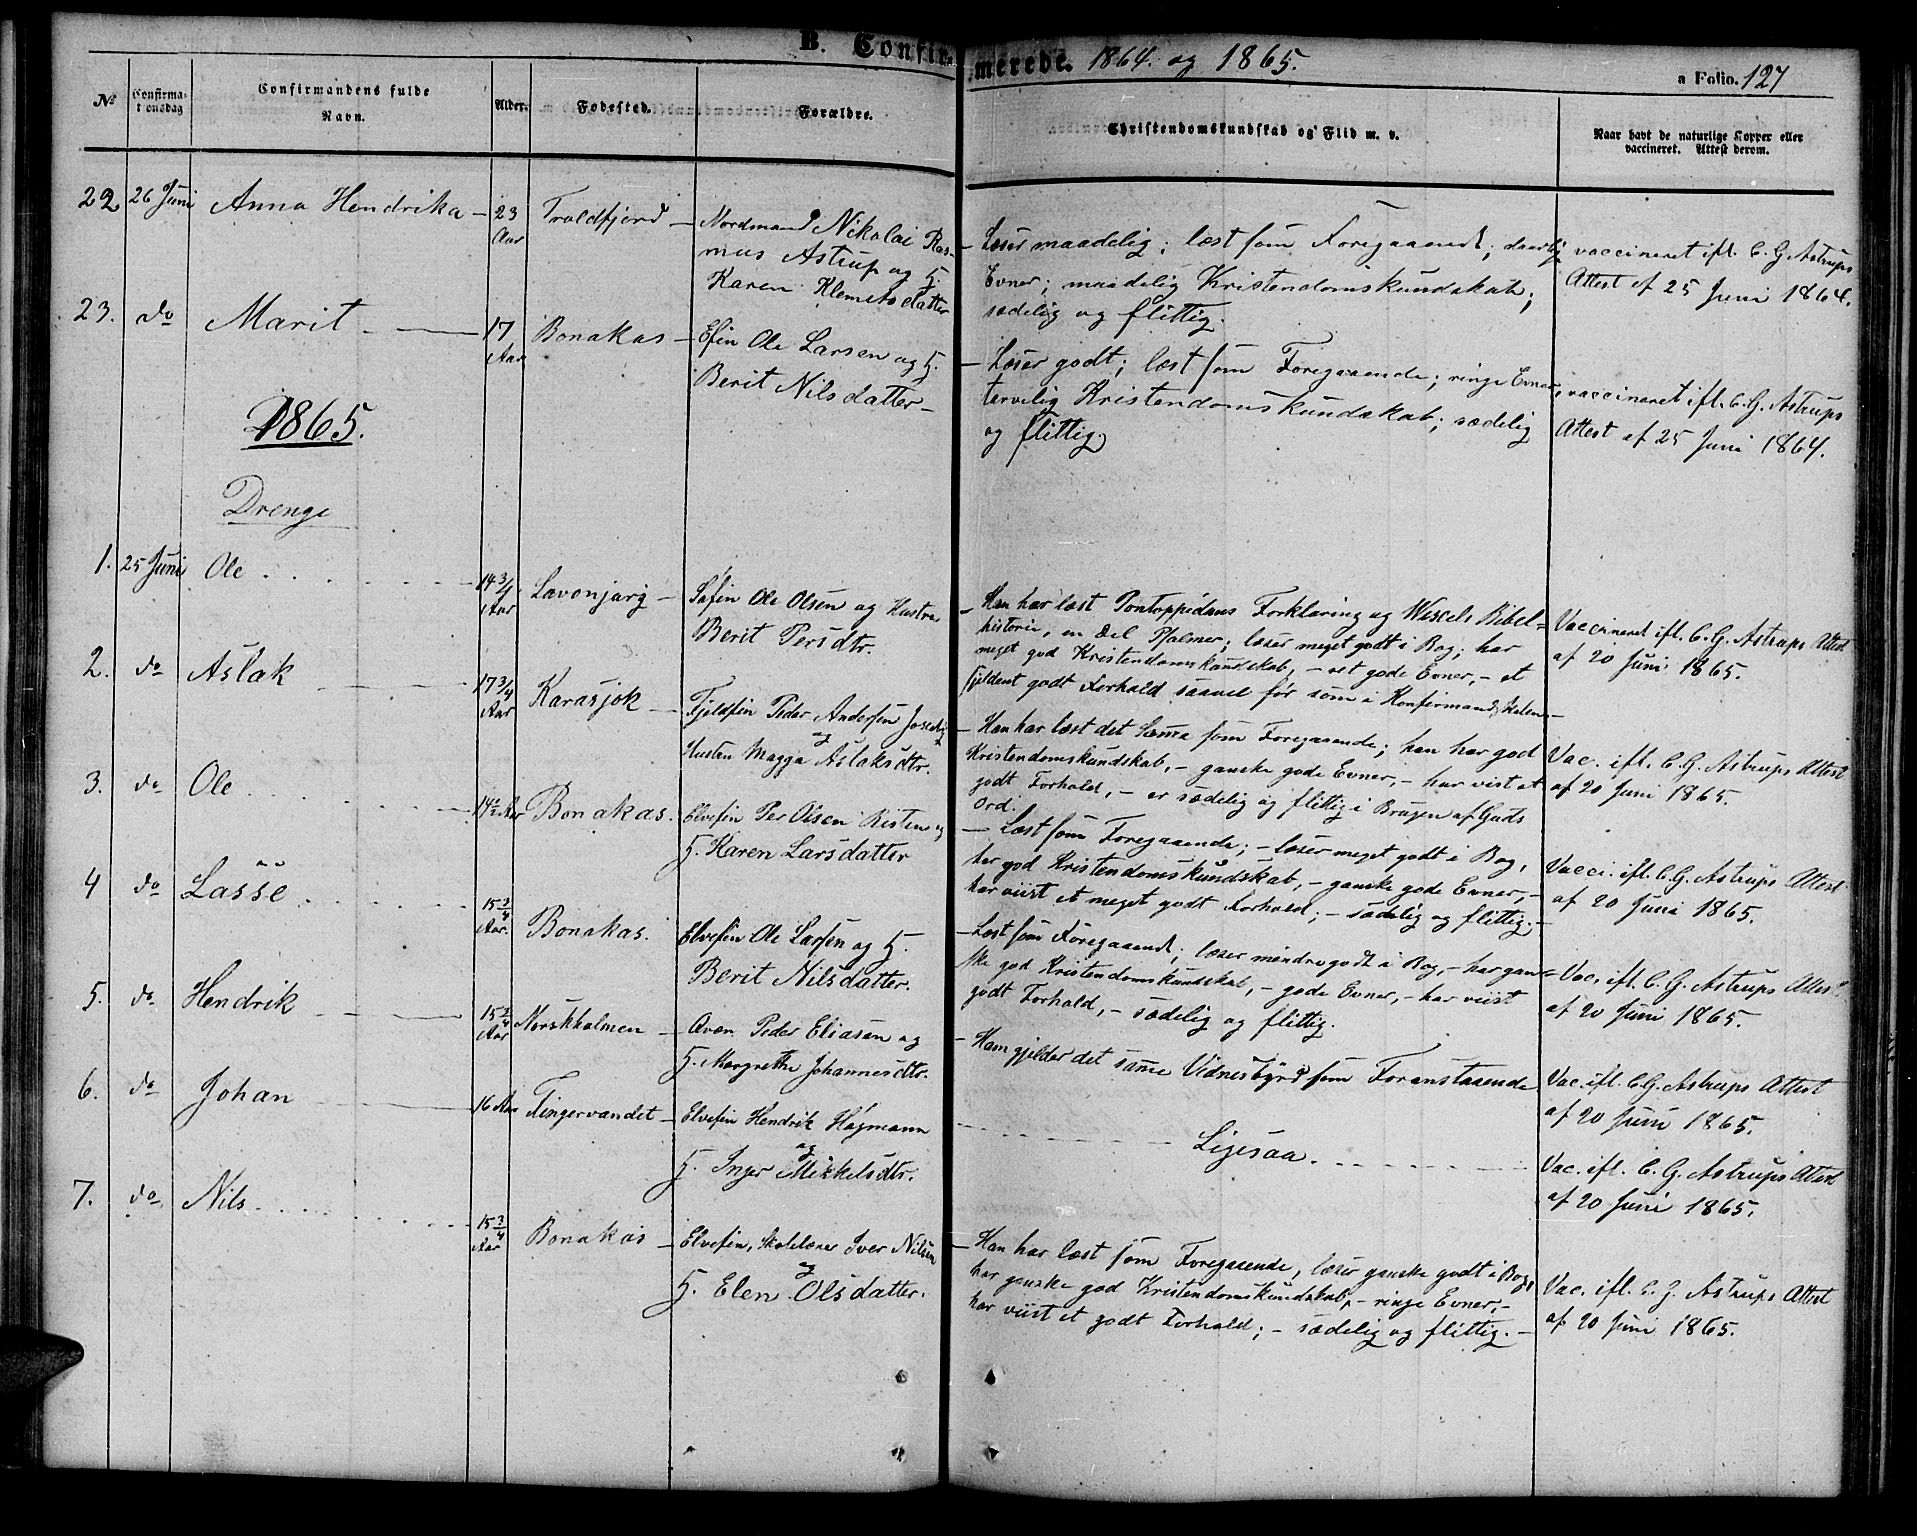 B. Confirmerede. 1864. og 1865.
a Folio. 127
No
Confirmationsdag
Confirmandens fulde Navn.
Alder.
Fødested.
Forældre.
Christendomskundskab og Flid m. v.
Naar havt de naturlige Kopper eller vaccineret. Attest derom.
22 26 Juni Anna Hendrika - 23 Aar Troldfjord -
Nordmand Nikolai Ras-
mus Astrup og H.
Karen Klemetsdatter
- Læser maadelig; læst som Foregaaende; daarlig
Evner; maadelig Kristendomskundskab;
sædelig og flittig.
vaccineret ifl. C. G. Astrups
Attest af 25 Juni 1864.
23. do Marit - 17 Aar Bonakas -
Efin Ole Larsen og H.
Berit Nilsdatter -
- Læser godt; læst som Foregaaende; ringe Evner,
tervelig Kristendomskundskab; sædelig
og flittig
vaccineret ifl. C. G. Astrups
Attest af 25 Juni 1864.
1865.
Drenge
1. 25 Juni Ole 14 3/4 Aar Lavonjarg -
Søfin Ole Olsen og Hustru
Berit Persdtr.
- Han har læst Pontoppidans Forklaring og Wexels Bibel=
historie, en Del Psalmer; læser meget godt i Bog; har
meget god Kristendomskundskab, - ret gode Evner, - et
sjeldent godt Forhold saavel før som i Konfirmandskolen -
Vaccineret ifl. C. G. Astrups Attest
af 20 Juni 1865.
2. do Aslak 17 3/4 Aar Karasjok -
Fjeldfin Peder Andersen
og
Hustru Magga Aslaksdtr.
- Han har læst det Samme som Foregaaende; han har god
Kristendomskundskab, - ganske gode Evner, - har vist et
godt Forhold, - er sædelig og flittig i Brugen af Guds
Ord.
Vac. ifl. C. G. Astrups Attest
af 20 Juni 1865.
3. do Ole 14 1/2 Aar Bonakas.
Elvefin Per Olsen Risten og
H. Karen Larsdatter
- Læst som Foregaaende; - læser meget godt i Bog,
har god Kristendomskundskab, - ganske gode Evner, -
har viist et meget godt Forhold; - sædelig og flittig. -
Vacci. ifl. C. G. Astrups Attest
af 20 Juni 1865.
4 do Lasse 15 3/4 Aar. Bonakas.
Elvefin Ole Larsen og H.
Berit Nilsdatter.
- Læst som Foregaaend; læser mindre godt i Bog, - har gan=
ske god Kristendomskundskab, - gode Evner, - har viist
godt Forhold, - sædelig og flittig.
Vac. ifl. C. G. Astrups Attest
af 20 Juni 1865.
5. do Hendrik 15 3/4 Aar Norskholmen -
Qvæn Peder Eliasen og
H. Margrethe Johannesdtr.
- Ham gjelder det samme Vidnesbyrd som Foranstaaende
Vac. ifl. C. G. Astrups Attest
af 20 Juni 1865.
6. do Johan 16 Aar Fingervandet -
Elvefin Hendrik Høgmann
og
H. Inger Mikkelsdtr.
Ligesaa.
Vac. ifl. C. G. Astrups Attest
af 20 Juni 1865.
7. do Nils 15 3/4 Aar Bonakas -
Elvefin, Skolelærer Iver Nilsen
og
H. Elen Olsdatter.
- Han har læst som Foregaaende, læser ganske godt i Bog,
har ganske god Kristendomskundskab, - ringe Evner; -
har viist et godt Forhold; - sædelig og flittig. -
Vac. ifl. C. G. Astrups Attest
af 20 Juni 1865.